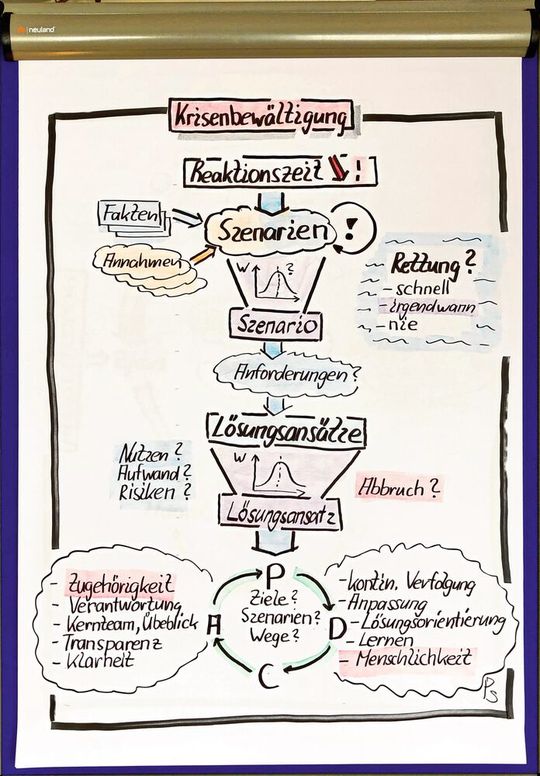 neuland
Krisenbewältigung
Reaktionszeit !
Fakten
Szenarien !
Annahmen
W ?
Szenario
Rettung?
- schnell
- irgendwann
- nie
Anforderungen?
Lösungsansätze
Nutzen?
Aufwand?
Risiken?
W
Lösungsansatz
Abbruch?
- Zugehörigkeit
- Verantwortung
- Kernteam, Übeblick
- Transparenz
- Klarheit
P
Ziele?
Szenarien?
Wege?
A
D
C
- kontin. Verfolgung
- Anpassung
- Lösungsorientierung
- Lernen
- Menschlichkeit
Ps